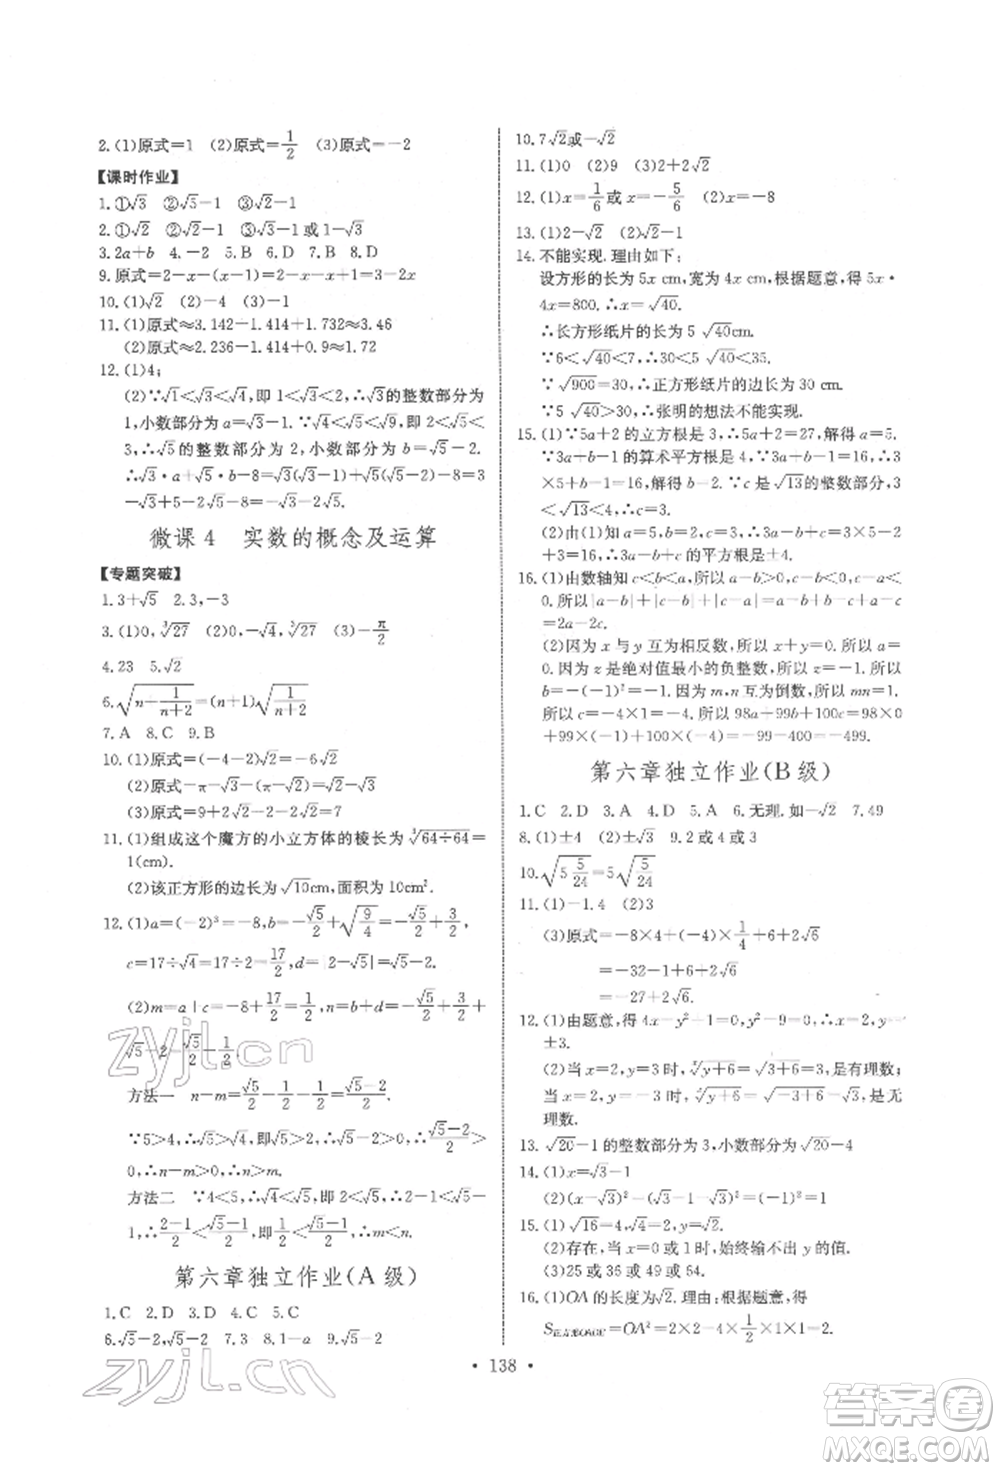 2.(1)原式=1 (2)原式=1/2 (3)原式=-2
【课时作业】
1.①√3 ②√5-1 ③√2-1
2.①√2 ②√2-1 ③√2-1或1-√3
3.2a+b 4.-2 5.B 6.D 7.B 8.D
9.原式=2-x-(x-1)=2-x-x+1=3-2x
10.(1)√2 (2)-4
11.(1)原式≈3.142-1.414+1.732≈3.46
(2)原式≈2.236-1.414+0.9≈1.72
12.(1)4;
(2)∵√1<√3<√4,即1<√3<2,∴√3的整数部分为
1,小数部分为a=√3-1.∵√4<√5<√9,即2<√5<
3,∴√5的整数部分为2,小数部分为b=√5-2.
∴√3·a+√5·b-8=√3(√3-1)+√5(√5-2)-8=
3-√3+5-2√5-8=-√3-2√5.
微课4 实数的概念及运算
【专题突破】
1.3+√5 2.3,-3
3.(1)0,∛27 (2)0,-√4,∛27 (3)-π/2
4.23 5.√2
6.√(n+1/(n+2))=(n+1)√(1/(n+2))
7.A 8.C 9.B
10.(1)原式=(-4-2)√2=-6√2
(2)原式=-π-√3-(√3-π)=-2√3
(3)原式=9+2√2-√2=9+√2
11.(1)组成这个魔方的小立方体的棱长为∛(64÷64)=
1(cm).
(2)该正方形的边长为√10cm,面积为10cm².
12.(1)a=(-2)³=-8,b=-√5/2+√(9/4)=-√5/2+3/2,
c=17÷√4=17÷2=17/2,d=|2-√5|=√5-2.
(2)m=a+c=-8+17/2=1/2,n=b+d=-√5/2+3/2+
√5-2=√5/2-1/2
方法一 n-m=√5/2-1/2-1/2=√5/2-1=(√5-2)/2.
∵5>4,∴√5>√4,即√5>2,∴√5-2>0,∴(√5-2)/2>
0,∴n-m>0,∴n>m.
方法二 ∵4<5,∴√4<√5,即2<√5,∴2-1<√5-
1,∴(2-1)/2<(√5-1)/2,即1/2<(√5-1)/2,∴m<n.
第六章独立作业(A级)
1.C 2.D 3.D 4.C 5.C
6.√5-2,√5-2 7.3 8.1-a 9.√5-2
10.7√2或-√2
11.(1)0 (2)9 (3)2+2√2
12.(1)x=1/6或x=-5/6 (2)x=-8
13.(1)2-√2 (2)√2-1
14.不能实现.理由如下:
设方形的长为5x cm,宽为4x cm,根据题意,得5x·
4x=800.∴x=√40.
∴长方形纸片的长为5√40cm.
∵6<√40<7,∴30<5√40<35.
∵√900=30,∴正方形纸片的边长为30 cm.
∵5√40>30,∴张明的想法不能实现.
15.(1)∵5a+2的立方根是3,∴5a+2=27,解得a=5.
∵3a+b-1的算术平方根是4,∴3a+b-1=16,∴3
×5+b-1=16,∴b=2.∵c是√13的整数部分,3
<√13<4,∴c=3.
(2)由(1)知a=5,b=2,c=3,∴3a-b+c=3×5-2
+3=16,∴3a-b+c的平方根是±4.
16.(1)由数轴知c<b<a,所以a-b>0,c-b<0,c-a<
0.所以|a-b|+|c-b|+|c-a|=a-b+b-c+a-c
=2a-2c.
(2)因为x与y互为相反数,所以x+y=0.所以a=
0.因为z是绝对值最小的负整数,所以z=-1.所以
b=-(-1)²=-1.因为m,n互为倒数,所以mn=1.
所以c=-1+4×1=3.所以98a-99b+100c=98×0
+99+100×3-99×(-1)+100×4=499.
第六章独立作业(B级)
1.C 2.D 3.A 4.D 5.A 6.无理.如-√2 7.49
8.(1)±4 (2)±√3 9.2或4或3
10.√(5 5/24)=5√(5/24)
11.(1)-1.4 (2)3
(3)原式=-8×4+(-4)×1/4+6+2√6
=-32-1+6+2√6
=-27+2√6.
12.(1)由题意,得4x-y²-1=0,y²-9=0,∴x=2,y=
±3.
(2)当x=2,y=3时,√(y+6)=√(3+6)=3,是有理数;
当x=2,y=-3时,√(y+6)=√(-3+6)=√3,是无
理数.
13.√20-1的整数部分为3,小数部分为√20-4
14.(1)x=√3-1
(2)(x-√3)²-√3x=(√3-1-√3)²-√3(√3-1)=√3-2
15.(1)√16=4,√4=2,y=√2.
(2)存在,当x=0或x=1时,始终输不出y的值.
(3)25或36或49或64.
16.(1)OA的长度为√2.理由:根据题意,得
S正方形OAGE=OA²=2×2-4×1/2×1×1=2.
• 138 •
zyjl.cn
zyjl.cn
答案圈
MXQE.COM